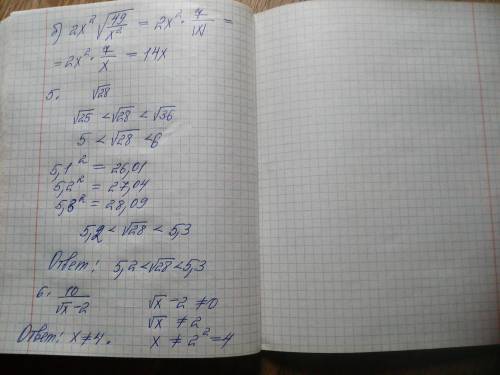 б) 2x² √(49/x²) = 2x² · 7/|x| =
= 2x² · 7/x = 14x
5. √28
√25 < √28 < √36
5 < √28 < 6
5,1² = 26,01
5,2² = 27,04
5,3² = 28,09
5,2 < √28 < 5,3
Ответ: 5,2 < √28 < 5,3
6. 10/(√x - 2)
√x - 2 ≠ 0
√x ≠ 2
x ≠ 2² = 4
Ответ: x ≠ 4.